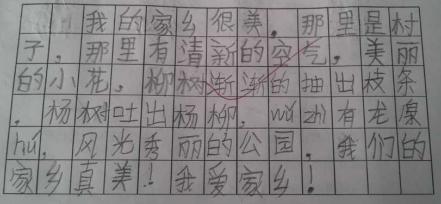 我的家乡很美。那里是村
子，那里有清新的空气，美丽
的小花，柳树渐渐的抽出枝条
，杨树吐出杨柳，wú zhì有龙泉
hú，风光秀丽的公园，我们的
家乡真美！我爱家乡！